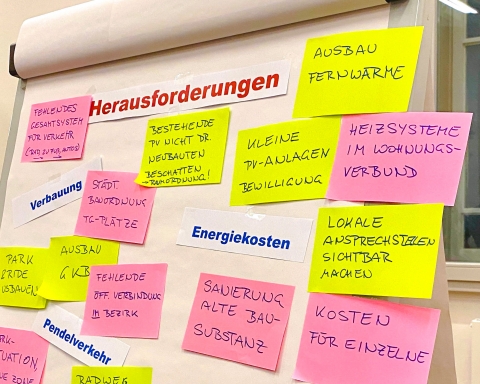 Herausforderungen
AUSBAU
FERNWÄRME
FEHLENDES
GESAMTSYSTEM
FÜR VERKEHR
(RAD, ZU FUß, AUTOS)
BESTEHENDE
PV NICHT DR.
NEUBAUTEN
BESCHATTEN
→ RAUMORDNUNG!
KLEINE
PV-ANLAGEN
BEWILLIGUNG
HEIZSYSTEME
IM WOHNUNGS-
VERBUND
Verbauung
STÄDT.
BAUORDNUNG
TG-PLÄTZE
Energiekosten
LOKALE
ANSPRECHSTELLEN
SICHTBAR
MACHEN
PARK
&RIDE
USBAUEN
AUSBAU
GKB
FEHLENDE
ÖFF. VERBINDUNG
IM BEZIRK
SANIERUNG
ALTE BAU-
SUBSTANZ
KOSTEN
FÜR EINZELNE
Pendelverkehr
RK-
TUATION,
UE ZONE
RADWEG